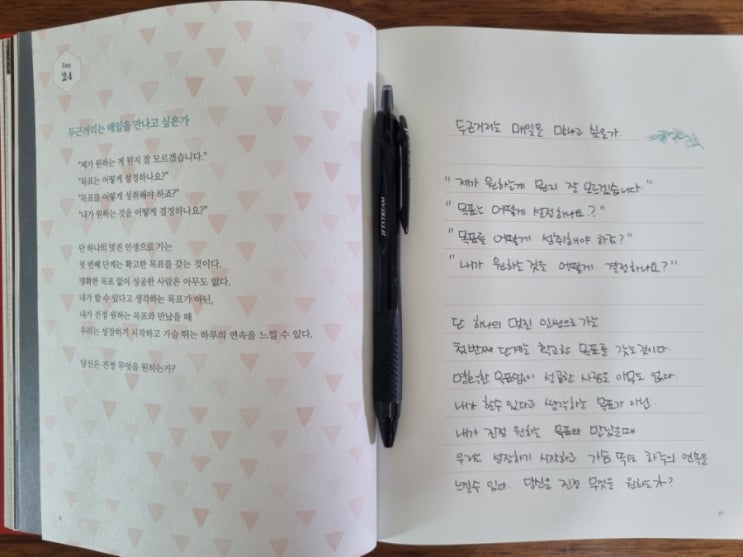 Day
24
두근거리는 매일을 만나고 싶은가
"제가 원하는 게 뭔지 잘 모르겠습니다."
"목표는 어떻게 설정하나요?"
"목표를 어떻게 성취해야 하죠?"
"내가 원하는 것을 어떻게 결정하나요?"
단 하나의 멋진 인생으로 가는
첫 번째 단계는 확고한 목표를 갖는 것이다.
명확한 목표 없이 성공한 사람은 아무도 없다.
내가 할 수 있다고 생각하는 목표가 아닌,
내가 진정 원하는 목표와 만났을 때
우리는 성장하기 시작하고 가슴 뛰는 하루의 연속을 느낄 수 있다.
당신은 진정 무엇을 원하는가?
JETSTREAM
두근거리는 매일을 만나고 싶은가
"제가 원하는게 뭔지 잘 모르겠습니다"
"목표는 어떻게 설정하나요?"
"목표를 어떻게 성취해야 하죠?"
"내가 원하는 것을 어떻게 결정하나요?"
단 하나의 멋진 인생으로 가는
첫번째 단계는 확고한 목표를 갖는것이다.
명확한 목표없이 성공한 사람은 아무도 없다.
내가 할수있다고 생각하는 목표가 아닌.
내가 진정 원하는 목표와 만났을때
우리는 성장하기 시작하고 가슴 뛰는 하루의 연속을
느낄수 있다. 당신은 진정 무엇을 원하는가?